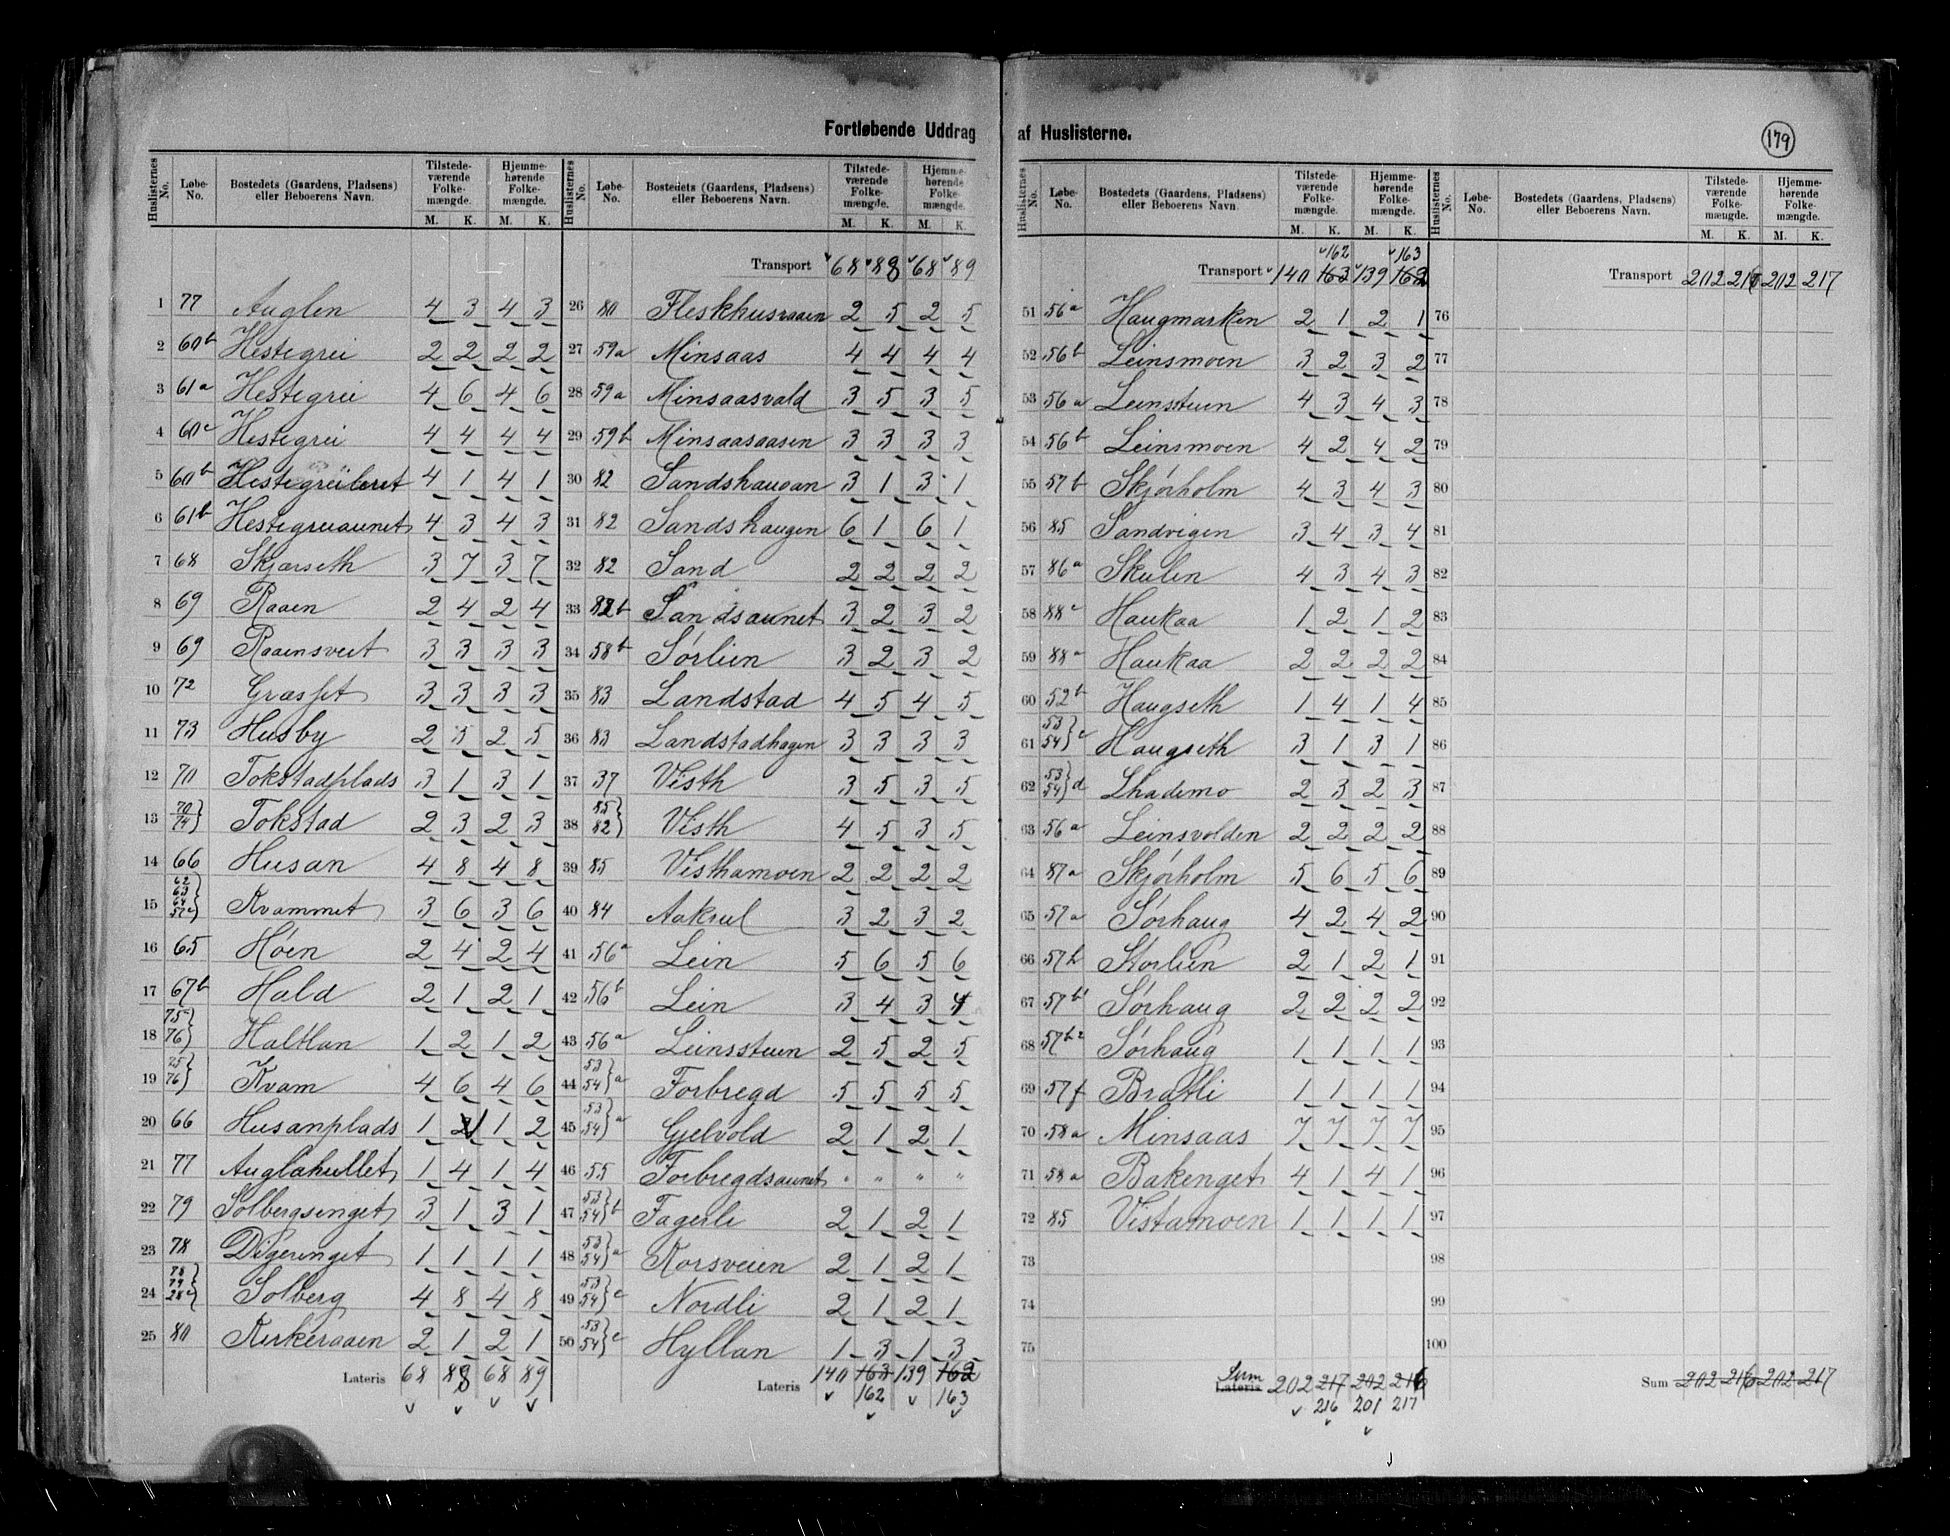 Fortløbende Uddrag af Huslisterne.
179
Huslisternes No. Løbe-No. Bostedets (Gaardens, Pladsens) eller Beboerens Navn. Tilstedeværende Folkemængde. M. K. Hjemmehørende Folkemængde. M. K.
1 77 Auglen 4 3 4 3
2 60b Hestegrei 2 2 2 2
3 61a Hestegrei 4 6 4 6
4 60c Hestegrei 4 4 4 4
5 60b Hestegreileret 4 1 4 1
6 61b Hestegreiaunet 4 3 4 3
7 68 Skjærseth 3 7 3 7
8 69 Raaen 2 4 2 4
9 69 Raaensveet 3 3 3 3
10 72 Græsset 3 3 3 3
11 73 Husby 2 5 2 5
12 70 Tokstadplads 3 1 3 1
13 70 74 } Tokstad 2 3 2 3
14 66 Husan 4 8 4 8
15 62 63 64 57e } Kvammet 3 6 3 6
16 65 Høen 2 4 2 4
17 67b Hald 2 1 2 1
18 75 76 } Haltlan 1 2 1 2
19 75 76 } Kvam 4 6 4 6
20 66 Husanplads 1 1 2
21 77 Auglahullet 1 4 1 4
22 79 Solbergsenget 3 1 3 1
23 78 Digerenget 1 1 1 1
24 78 79 28c } Solberg 4 8 4 8
25 80 Kirkeraaen 2 1 2 1
Lateris 68 88 68 89
Huslisternes No. Løbe-No. Bostedets (Gaardens, Pladsens) eller Beboerens Navn. Tilstedeværende Folkemængde. M. K. Hjemmehørende Folkemængde. M. K.
Transport 68 88 68 89
26 80 Fleskhusraaen 2 5 2 5
27 59a Minsaas 4 4 4 4
28 59a Minsaasvald 3 5 3 5
29 59b Minsaasaasen 3 3 3 3
30 82 Sandshaugan 3 1 3 1
31 82 Sandshaugen 6 1 6 1
32 82 Sand 2 2 2 2
33 82b Sandsaunet 3 2 3 2
34 58b Sørlien 3 2 3 2
35 83 Landstad 4 5 4 5
36 83 Landstadhagen 3 3 3 3
37 37 Visth 3 5 3 5
38 85 82 } Visth 4 5 3 5
39 85 Visthamoen 2 2 2 2
40 84 Aaksul 3 2 3 2
41 56a Lein 5 6 5 6
42 56b Lein 3 4 3 4
43 56a Leinssteen 2 5 2 5
44 53 54 } a Forbregd 5 5 5 5
45 53 54 } a Gjelvold 2 1 2 1
46 55 Forbregdsaunet " " " "
47 53 54 } b Fagerli 2 1 2 1
48 53 54 } a Korsveien 2 1 2 1
49 53 54 } c Nordli 2 1 2 1
50 53 54 } c Hyllan 1 3 1 3
Lateris 140 163 139 162
162 163
Huslisternes No. Løbe-No. Bostedets (Gaardens, Pladsens) eller Beboerens Navn. Tilstedeværende Folkemængde. M. K. Hjemmehørende Folkemængde. M. K.
162 163
Transport 140 163 139 162
51 56a Haugmarken 2 1 2 1
52 56b Leinsmoen 3 2 3 2
53 56a Leinsteen 4 3 4 3
54 56b Leinsmoen 4 2 4 2
55 57b Skjørholm 4 3 4 3
56 85 Sandvigen 3 4 3 4
57 86a Skulen 4 3 4 3
58 88c Haukaa 1 2 1 2
59 88a Haukaa 2 2 2 2
60 52b Haugseth 1 4 1 4
61 53 54 } c Haugseth 3 1 3 1
62 53 54 } d Lhademo 2 3 2 3
63 56a Leinsvolden 2 2 2 2
64 87a Skjørholm 5 6 5 6
65 57a Sørhaug 4 2 4 2
66 57h Storlien 2 1 2 1
67 57b1 Sørhaug 2 2 2 2
68 57b2 Sørhaug 1 1 1 1
69 57f Bratli 1 1 1 1
70 58a Minsaas 7 7 7 7
71 58a Bakenget 4 1 4 1
72 85 Vistamoen 1 1 1 1
73
74
75
Sum
Lateris 202 217 202 216
216 201 217
Huslisternes No. Løbe-No. Bostedets (Gaardens, Pladsens) eller Beboerens Navn. Tilstedeværende Folkemængde. M. K. Hjemmehørende Folkemængde. M. K.
Transport 202 216 202 217
76
77
78
79
80
81
82
83
84
85
86
87
88
89
90
91
92
93
94
95
96
97
98
99
100
Sum 202 216 202 217